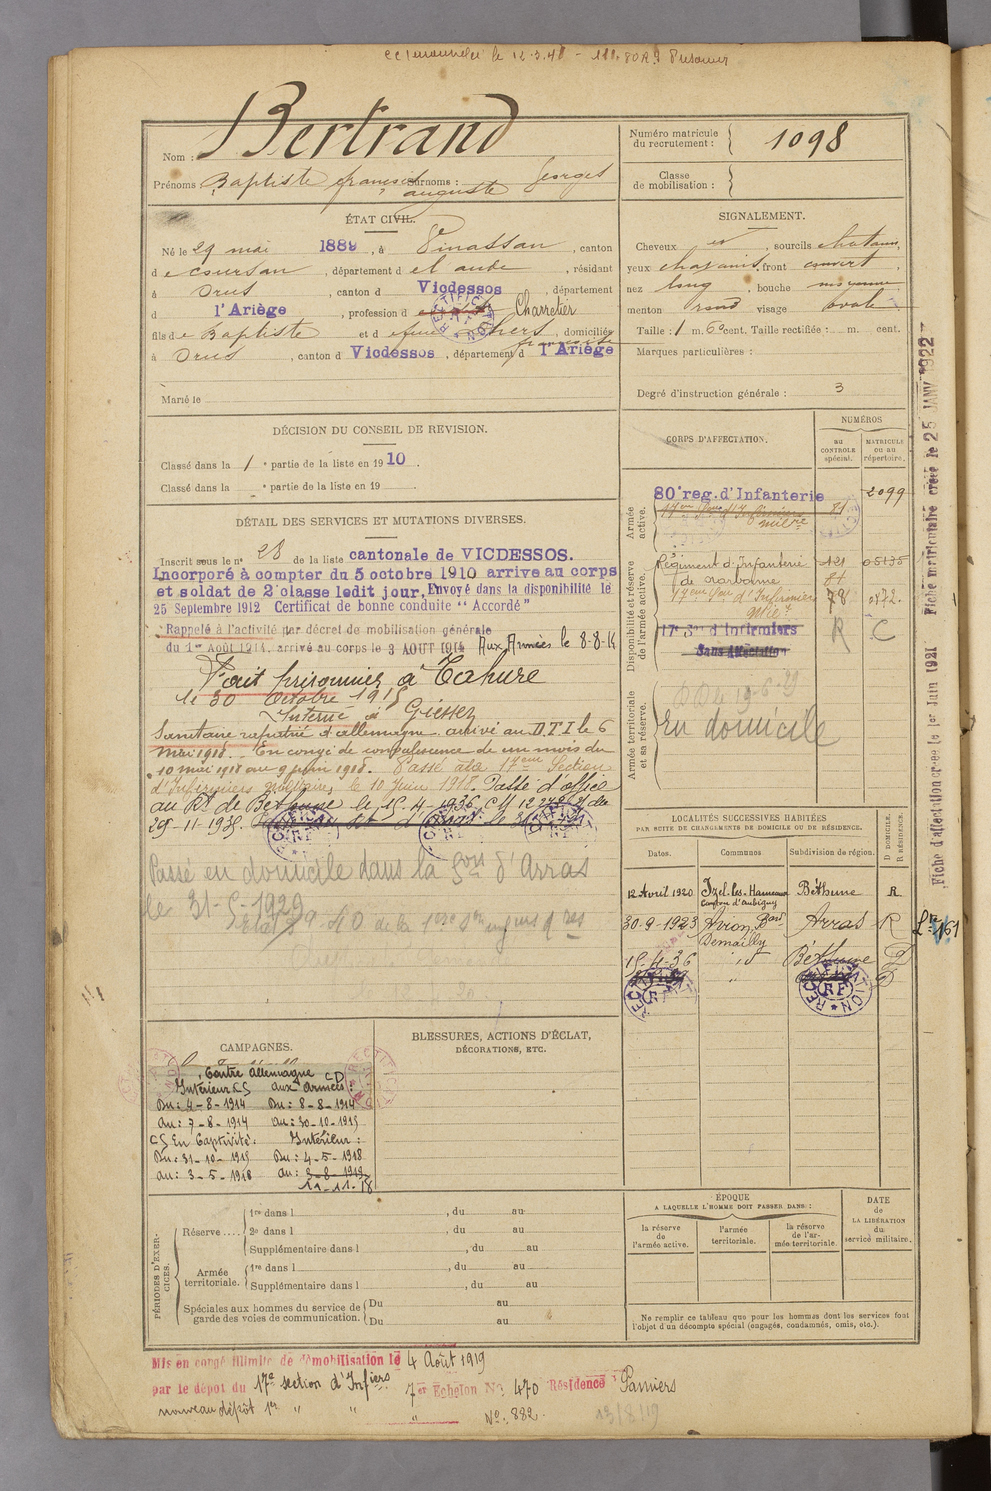 le 12.3.48
Nom : Bertrand
Prénoms : Baptiste françois auguste Surnoms : Georges
Numéro matricule du recrutement : 1098
Classe de mobilisation :
ÉTAT CIVIL.
Né le 29 mai 1889, à Vinassan, canton
de Coursan, département de l'aude, résidant
à Orus, canton d Vicdessos, département
d l'Ariège, profession d Charretier
fils de Baptiste et d françoise, domiciliés
à Orus, canton d Vicdessos, département d l'Ariège
Marié le
SIGNALEMENT.
Cheveux et, sourcils chatains,
yeux chatains, front couvert,
nez long, bouche moyenne
menton rond visage ovale
Taille : 1 m. 60 cent. Taille rectifiée : m. cent.
Marques particulières :
Degré d'instruction générale : 3
DÉCISION DU CONSEIL DE REVISION.
Classé dans la 1 e partie de la liste en 1910.
Classé dans la e partie de la liste en 19
DÉTAIL DES SERVICES ET MUTATIONS DIVERSES.
Inscrit sous le n° 28 de la liste cantonale de VICDESSOS.
Incorporé à compter du 5 octobre 1910 arrive au corps
et soldat de 2e classe ledit jour, Envoyé dans la disponibilité le
25 Septembre 1912 Certificat de bonne conduite "Accordé"
Rappelé à l'activité par décret de mobilisation générale
du 1er Août 1914, arrivé au corps le 3 AOUT 1914 Aux Armées le 8-8-14
Fait prisonnier à Tahure
le 30 Octobre 1915
Interné à Giessen
Sanitaire rapatrié d'allemagne arrivé au D.T.I le 6
mai 1918. En congé de convalescence de un mois du
10 mai 1918 au 9 juin 1918. Passé à la 17eme Section
d'Infirmiers militaires le 10 Juin 1918. Passé d'office
au Rt de Béthune le 15-4-1936
29-11-1935.
Passé en domicile dans la Son d'Arras
le 31-5-1929
CORPS D'AFFECTATION.
NUMÉROS
au CONTROLE spécial.
MATRICULE ou au répertoire.
Armée active.
80e reg. d'Infanterie 2099
17em Son d'Infirmiers milre 81
Disponibilité et réserve de l'armée active.
Régiment d'Infanterie 121 05135
de Narbonne 81
17eme Son d'Infirmiers 78 2172.
17e Son d'Infirmiers R C
Sans Affectation
Armée territoriale et sa réserve.
En domicile
LOCALITÉS SUCCESSIVES HABITÉES
PAR SUITE DE CHANGEMENTS DE DOMICILE OU DE RÉSIDENCE.
Dates. Communes. Subdivision de région. D DOMICILE. R RÉSIDENCE.
12 Avril 1920 Izel-les-Hameaux Béthune R
Canton d'Aubigny
30-9-1923 Avion, Bard Arras R
Demailly
15-4-36 Béthune D
Fiche d'affectation créée le 1er Juin 1921 Fiche matriculaire créée le 25 JANV 1922
CAMPAGNES.
Contre Allemagne
Intérieur CS aux Armées CD :
Du : 4-8-1914 Du : 8-8-1914
Au : 7-8-1914 Au : 30-10-1915
CS En Captivité : Intérieur :
Du : 31-10-1915 Du : 4-5-1918
Au : 3-5-1918 Au : 3-8-1919
11-11-18
BLESSURES, ACTIONS D'ÉCLAT,
DÉCORATIONS, ETC.
PÉRIODES D'EXERCICES.
Réserve....
1re dans l , du au
2e dans l , du au
Supplémentaire dans l , du au
Armée territoriale.
1re dans l , du au
Supplémentaire dans l , du au
Spéciales aux hommes du service de garde des voies de communication.
Du au
Du au
ÉPOQUE
A LAQUELLE L'HOMME DOIT PASSER DANS :
la réserve de l'armée active.
l'armée territoriale.
la réserve de l'armée territoriale.
DATE de LA LIBÉRATION du service militaire.
Ne remplir ce tableau que pour les hommes dont les services font
l'objet d'un décompte spécial (engagés, condamnés, omis, etc.).
Mis en congé illimité de démobilisation le 4 Août 1919
par le dépôt du 17e section d'Infiers 7er Echelon No 470 Résidence Pamiers
nouveau dépôt 1er " " " No. 882.
13/8/19